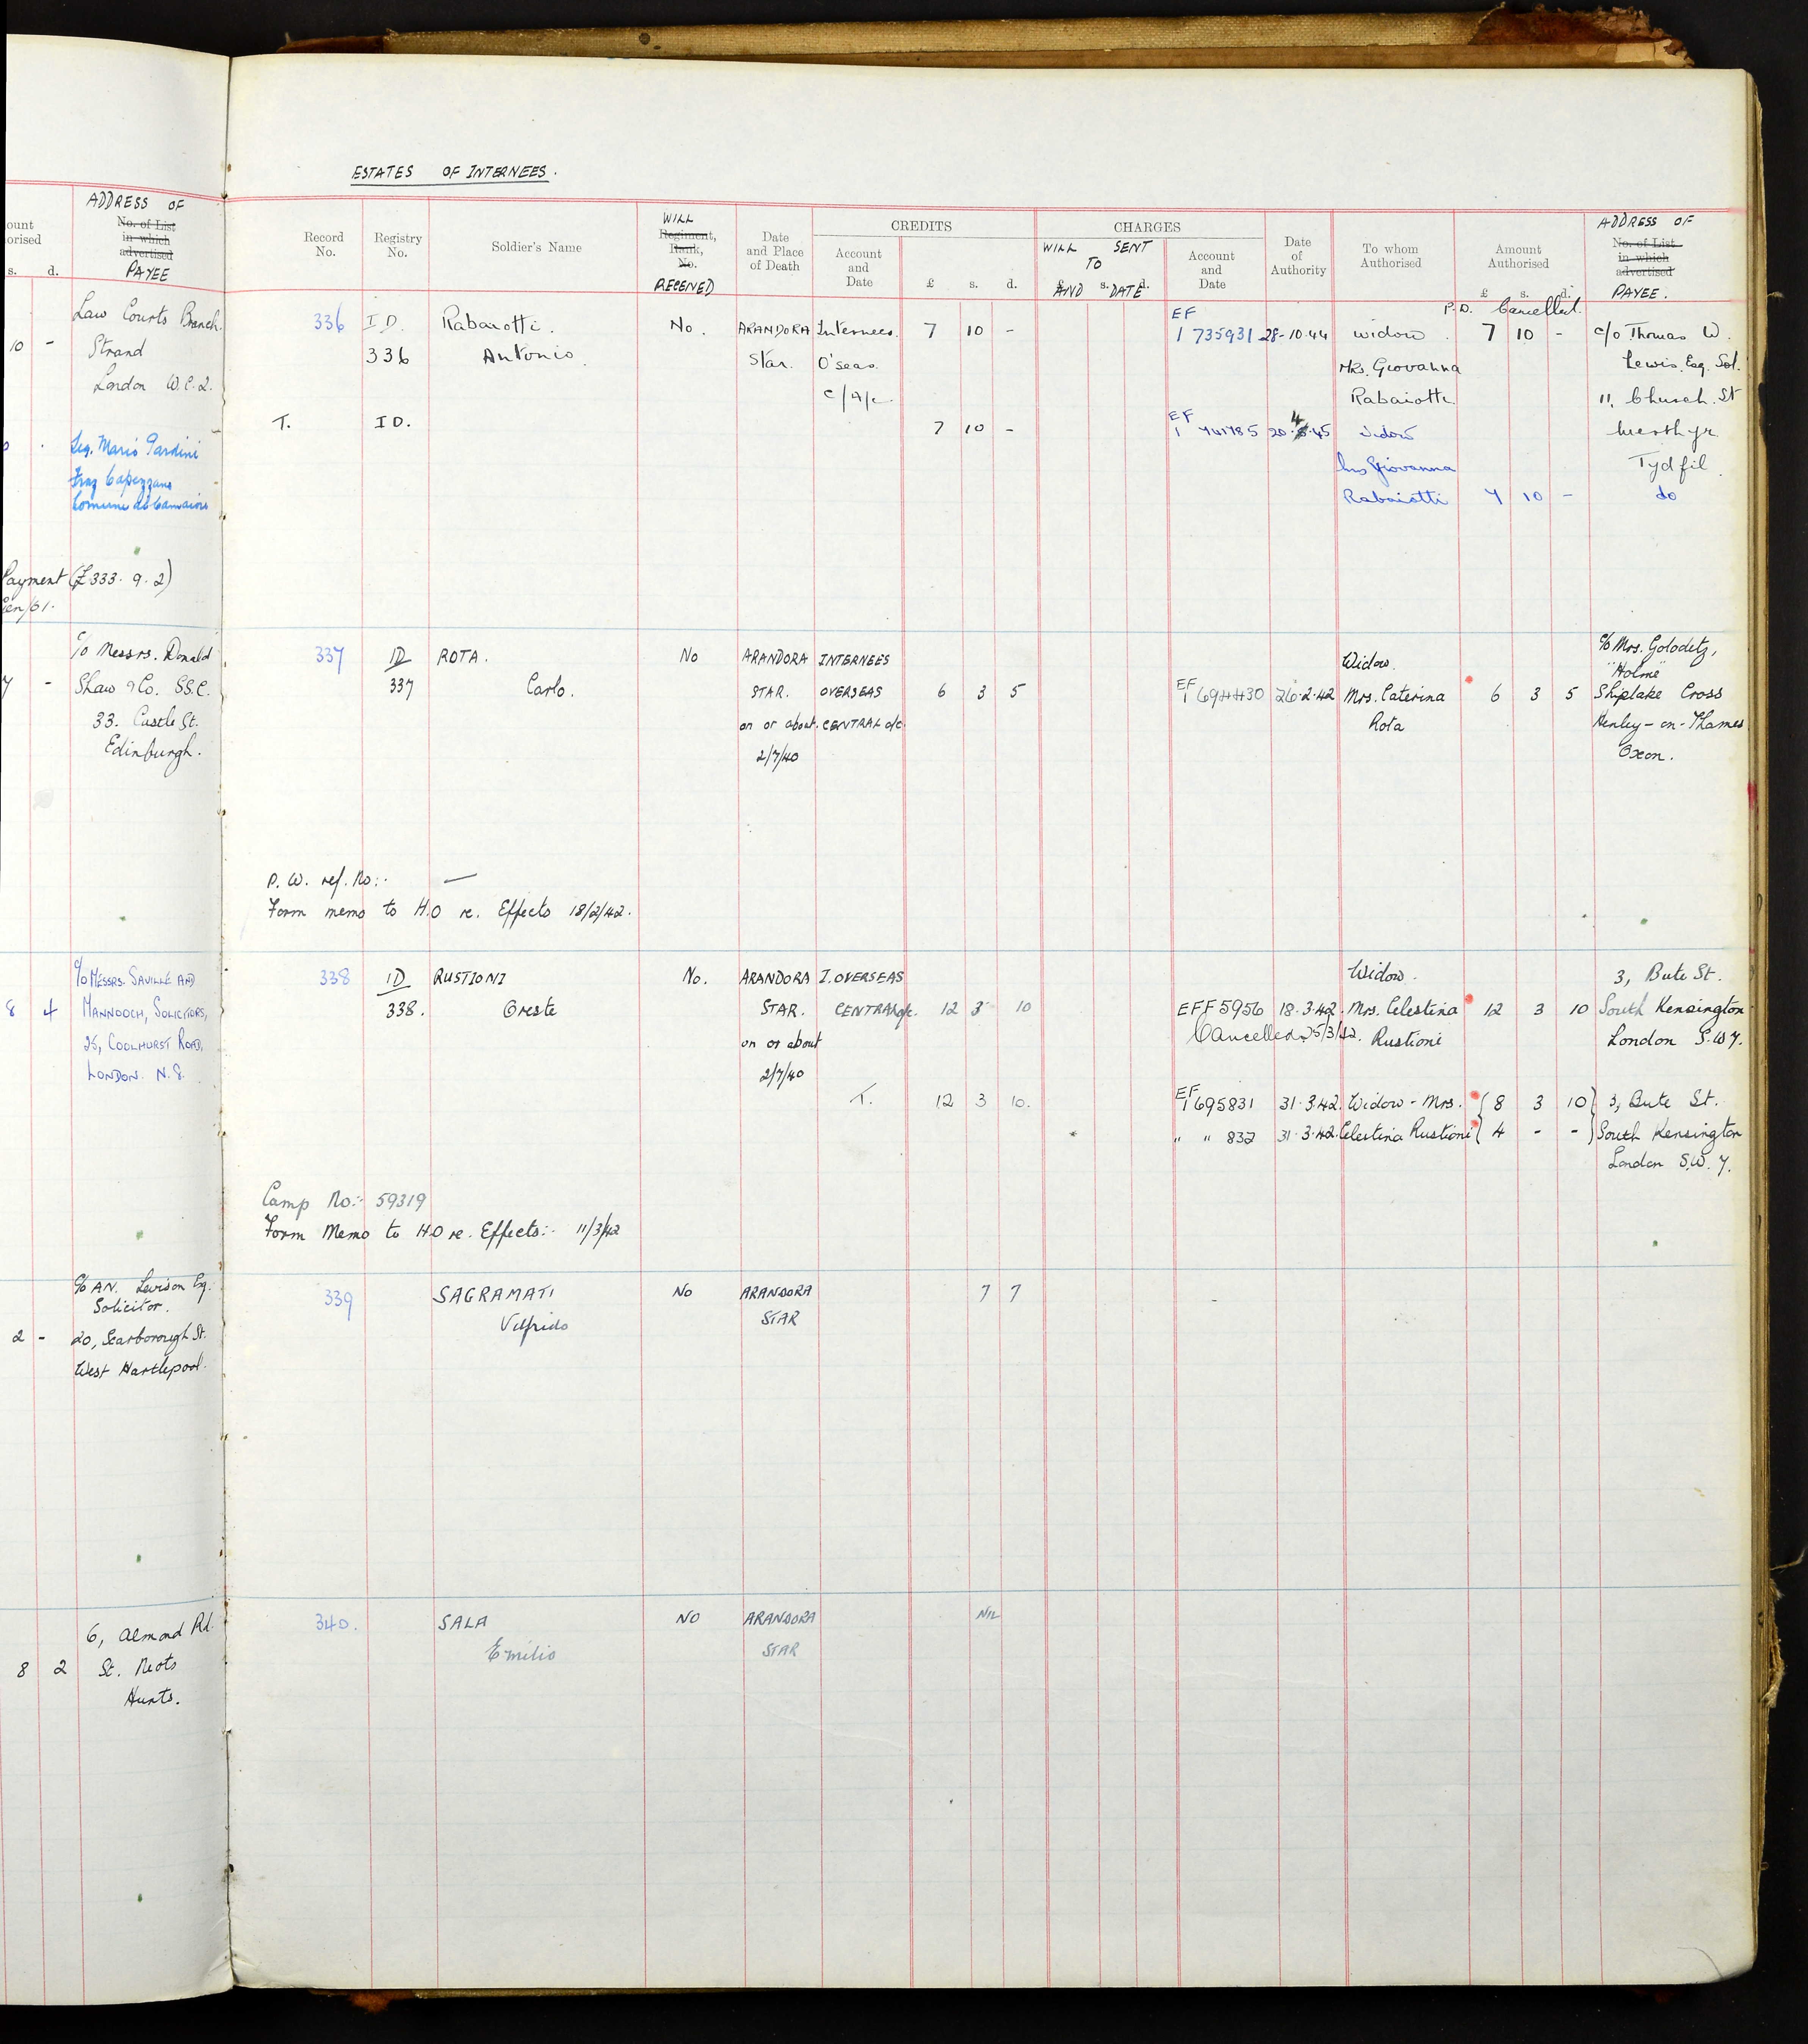 ount
orised
s. d.
ADDRESS OF
No. of List
in which
advertised
PAYEE
Law Courts Branch.
10 - Strand
London W.C.2.
Sig. Mario Pardini
Fraz Capezzano
Comune di Camaiore
Payment (£333. 9. 2)
Gen/61.
c/o Messrs. Donald
7 - Shaw & Co. S.S.C.
33. Castle St.
Edinburgh.
c/o MESSRS. SAVILLE AND
8 4 MANNOOCH, SOLICITORS,
25, COOLHURST ROAD,
LONDON. N.8.
c/o A.N. Levison Esq.
Solicitor.
2 - 20, Scarborough St.
West Hartlepool.
6, Almond Rd.
8 2 St. Neots
Hunts.
ESTATES OF INTERNEES.
Record No.
Registry No.
Soldier's Name
WILL
Regiment,
Rank,
No.
RECEIVED
Date
and Place
of Death
CREDITS
Account
and
Date
£ s. d.
CHARGES
WILL SENT
TO
AND DATE
£ s. d.
Account
and
Date
Date
of
Authority
To whom
Authorised
Amount
Authorised
£ s. d.
ADDRESS OF
No. of List
in which
advertised
PAYEE.
P.O. Cancelled.
336 I D. Rabaiotti. No. ARANDORA Internees. 7 10 - EF 1 735931 28-10-44 widow. 7 10 - c/o Thomas W.
336 Antonio. Star. O'seas Mrs. Giovanna Lewis, Esq. Sol.
c/A/c. Rabaiotti. 11, Church. St
T. I D. 7 10 - EF 1 741785 20.4.45 Widow Merthyr
Mrs Giovanna Tydfil.
Rabaiotti 7 10 - do
337 ID ROTA. No ARANDORA INTERNEES Widow. c/o Mrs. Golodetz,
"Holme"
337 Carlo. STAR. OVERSEAS 6 3 5 EF 1 694430 26.2.42 Mrs. Caterina 6 3 5 Shiplake Cross
on or about. CENTRAL a/c Rota Henley-on-Thames
2/7/40 Oxon.
P.W. ref. No:- —
Form memo to H.O re. Effects 18/2/42.
338 ID RUSTIONI No. ARANDORA I. OVERSEAS Widow. 3, Bute St.
338. Oreste STAR. CENTRAL a/c. 12 3 10 EFF 5956 18.3.42. Mrs. Celestina 12 3 10 South Kensington
on or about Cancelled 25/3/42. Rustioni London S.W.7.
2/7/40
T. 12 3 10. EF 1 695831 31.3.42. Widow - Mrs. { 8 3 10 } 3, Bute St.
" " 832 31.3.42. Celestina Rustioni { 4 - - } South Kensington
London S.W.7.
Camp No:- 59319
Form Memo to H.O re. Effects:- 11/3/42
339 SAGRAMATI No ARANDORA 7 7
Vilfrido STAR
340. SALA NO ARANDORA NIL
Emilio STAR